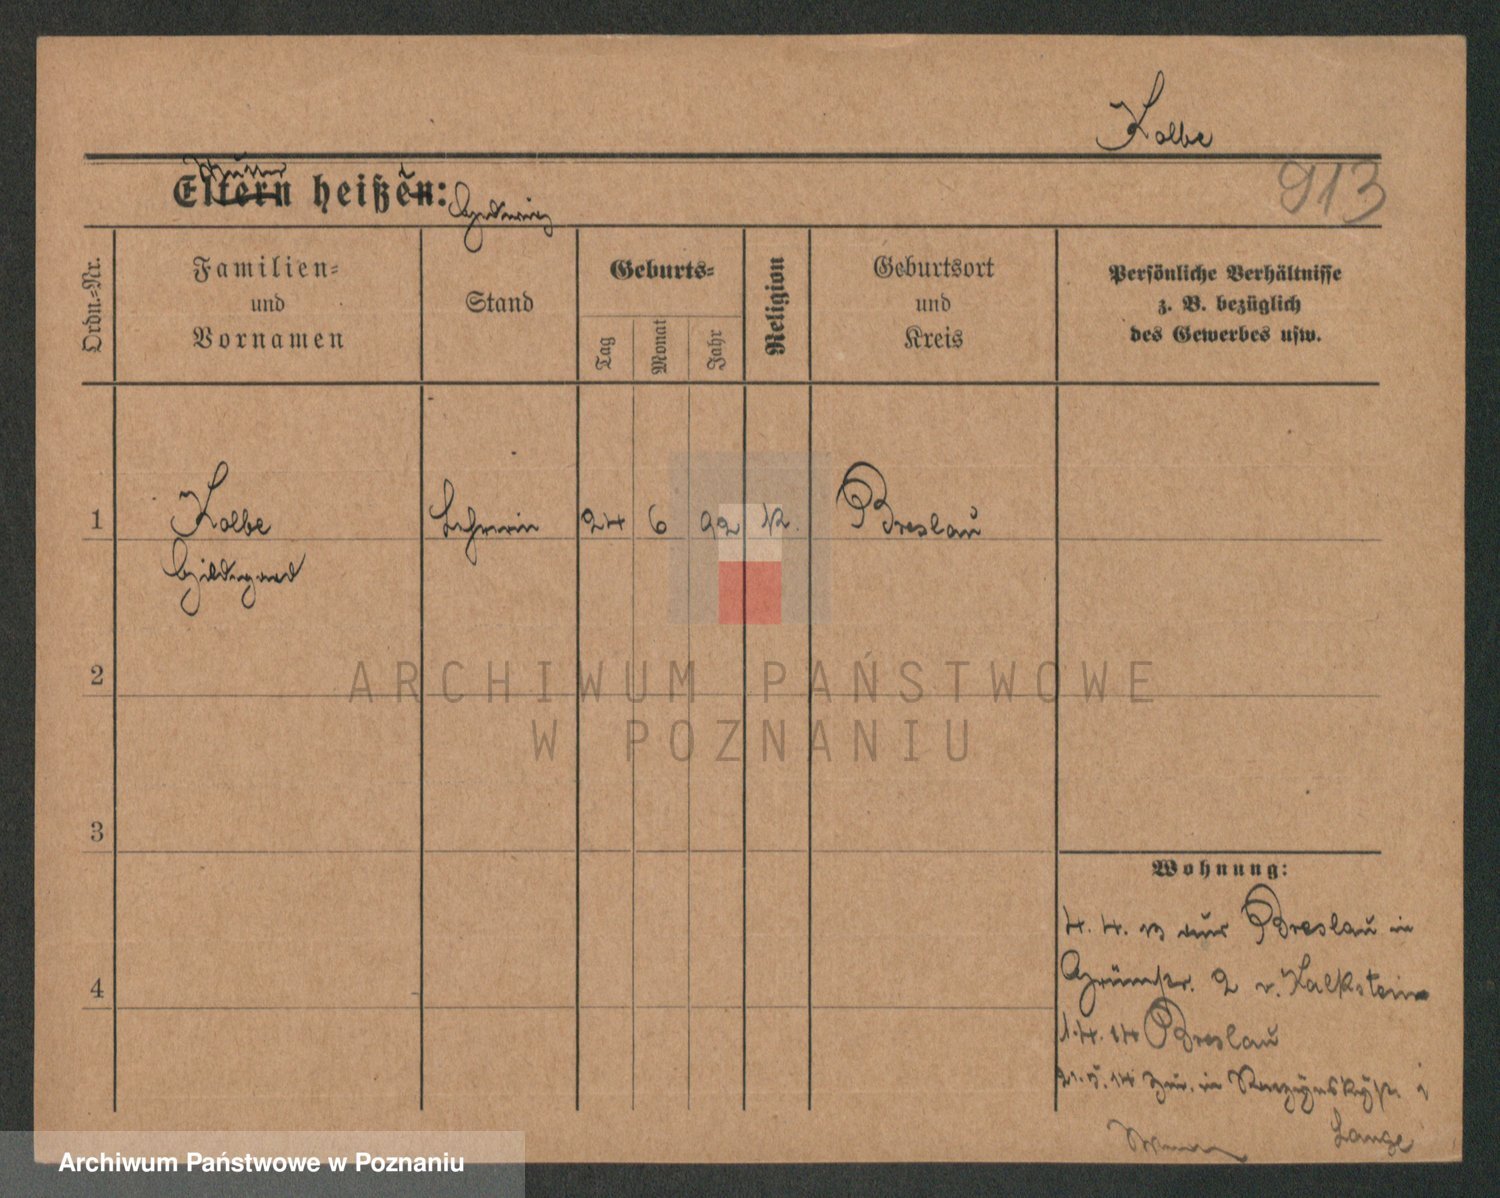 Kolbe
913
Mutter
Eltern heißen:
Hedwig
Ordn.-Nr.
Familien-
und
Vornamen
Stand
Geburts-
Tag
Monat
Jahr
Religion
Geburtsort
und
Kreis
Persönliche Verhältnisse
z. B. bezüglich
des Gewerbes usw.
1
Kolbe
Hildegard
Lehrerin
24
6
92
k.
Breslau
2
3
4
Wohnung:
4. 4. 13 aus Breslau in
2 v. Kalkstein
1.4.14 Breslau
21.5.14 zur. in
Lange
ARCHIWUM PAŃSTWOWE
W POZNANIU
Archiwum Państwowe w Poznaniu